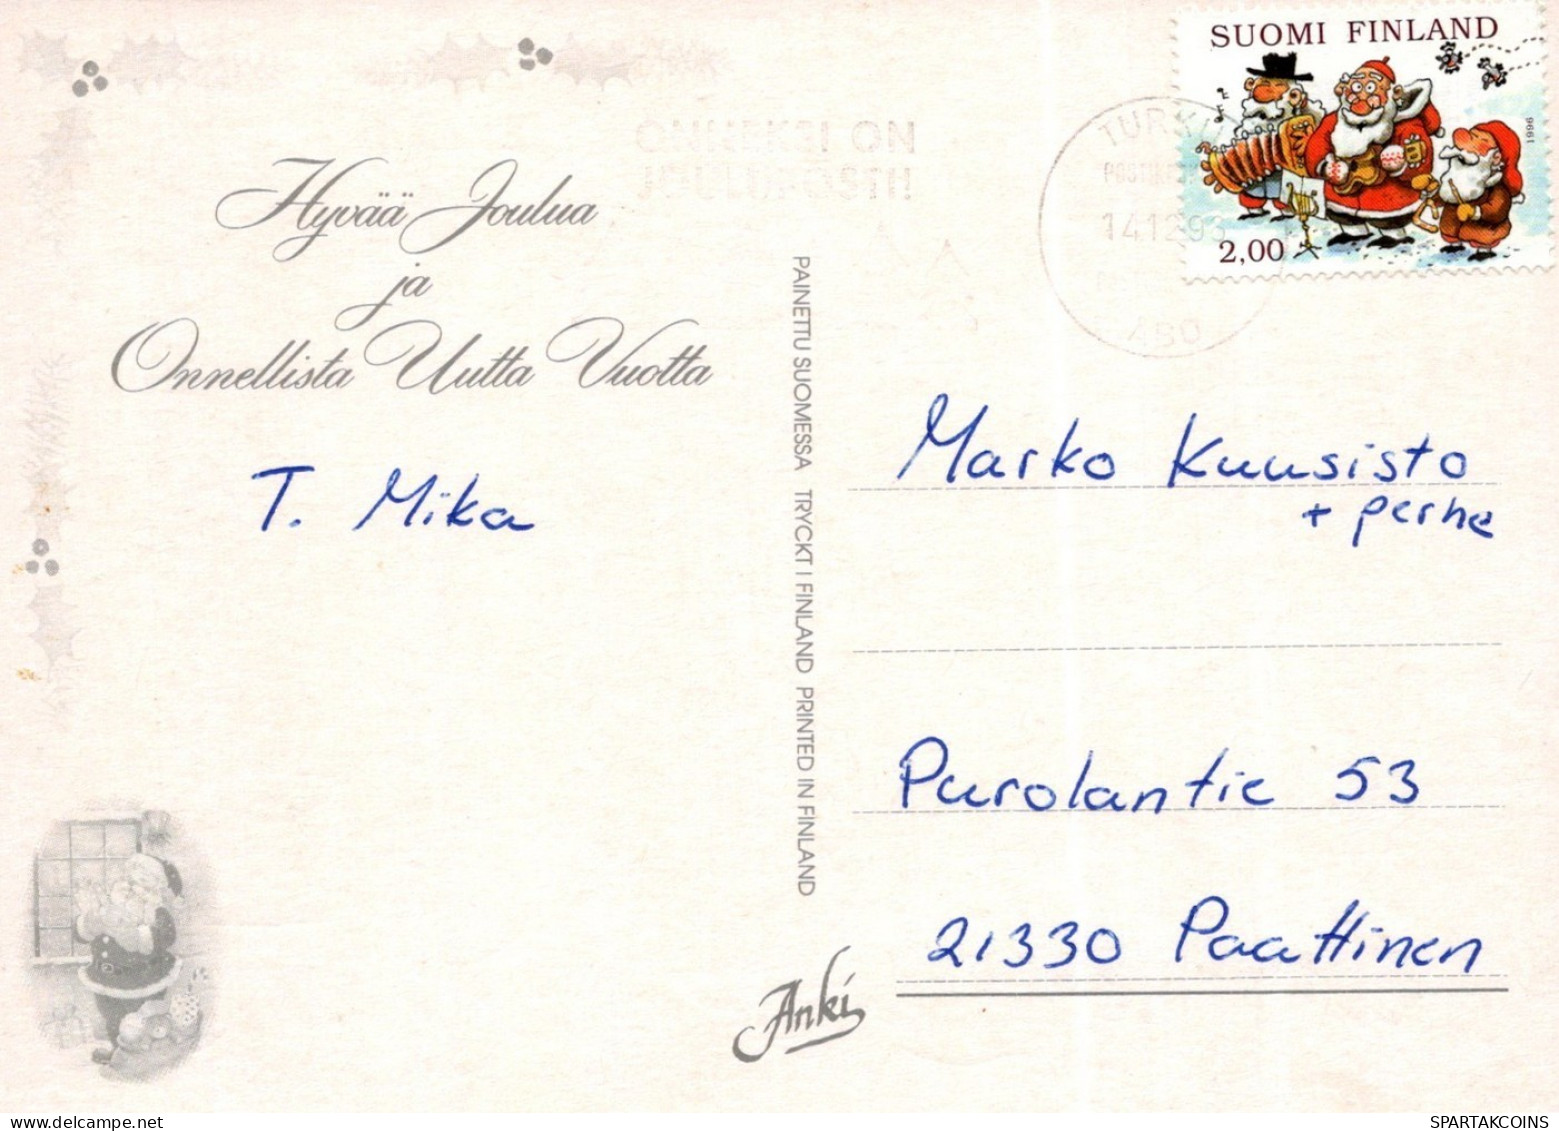 SUOMI FINLAND
1996
2,00
TURKU
14.12.9
ÅBO
ONNEKSI ON
JOULUPOSTI!
Hyvää Joulua
ja
Onnellista Uutta Vuotta
T. Mika
PAINETTU SUOMESSA TRYCKT I FINLAND PRINTED IN FINLAND
Marko Kuusisto
+ perhe
Purolantie 53
21330 Paattinen
Anki
SPARTAKCOINS